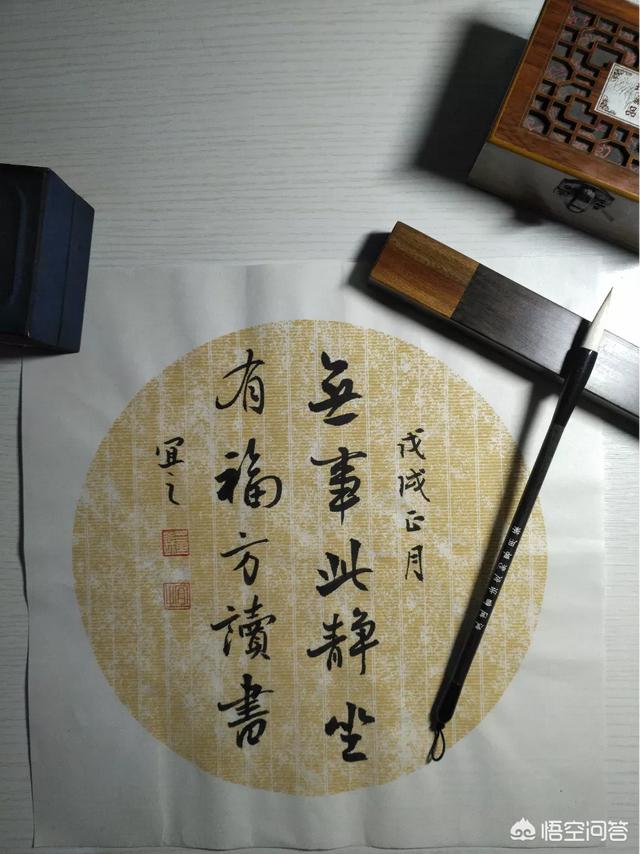 戊戌正月
無事此静坐
有福方讀書
宜之
悟空问答